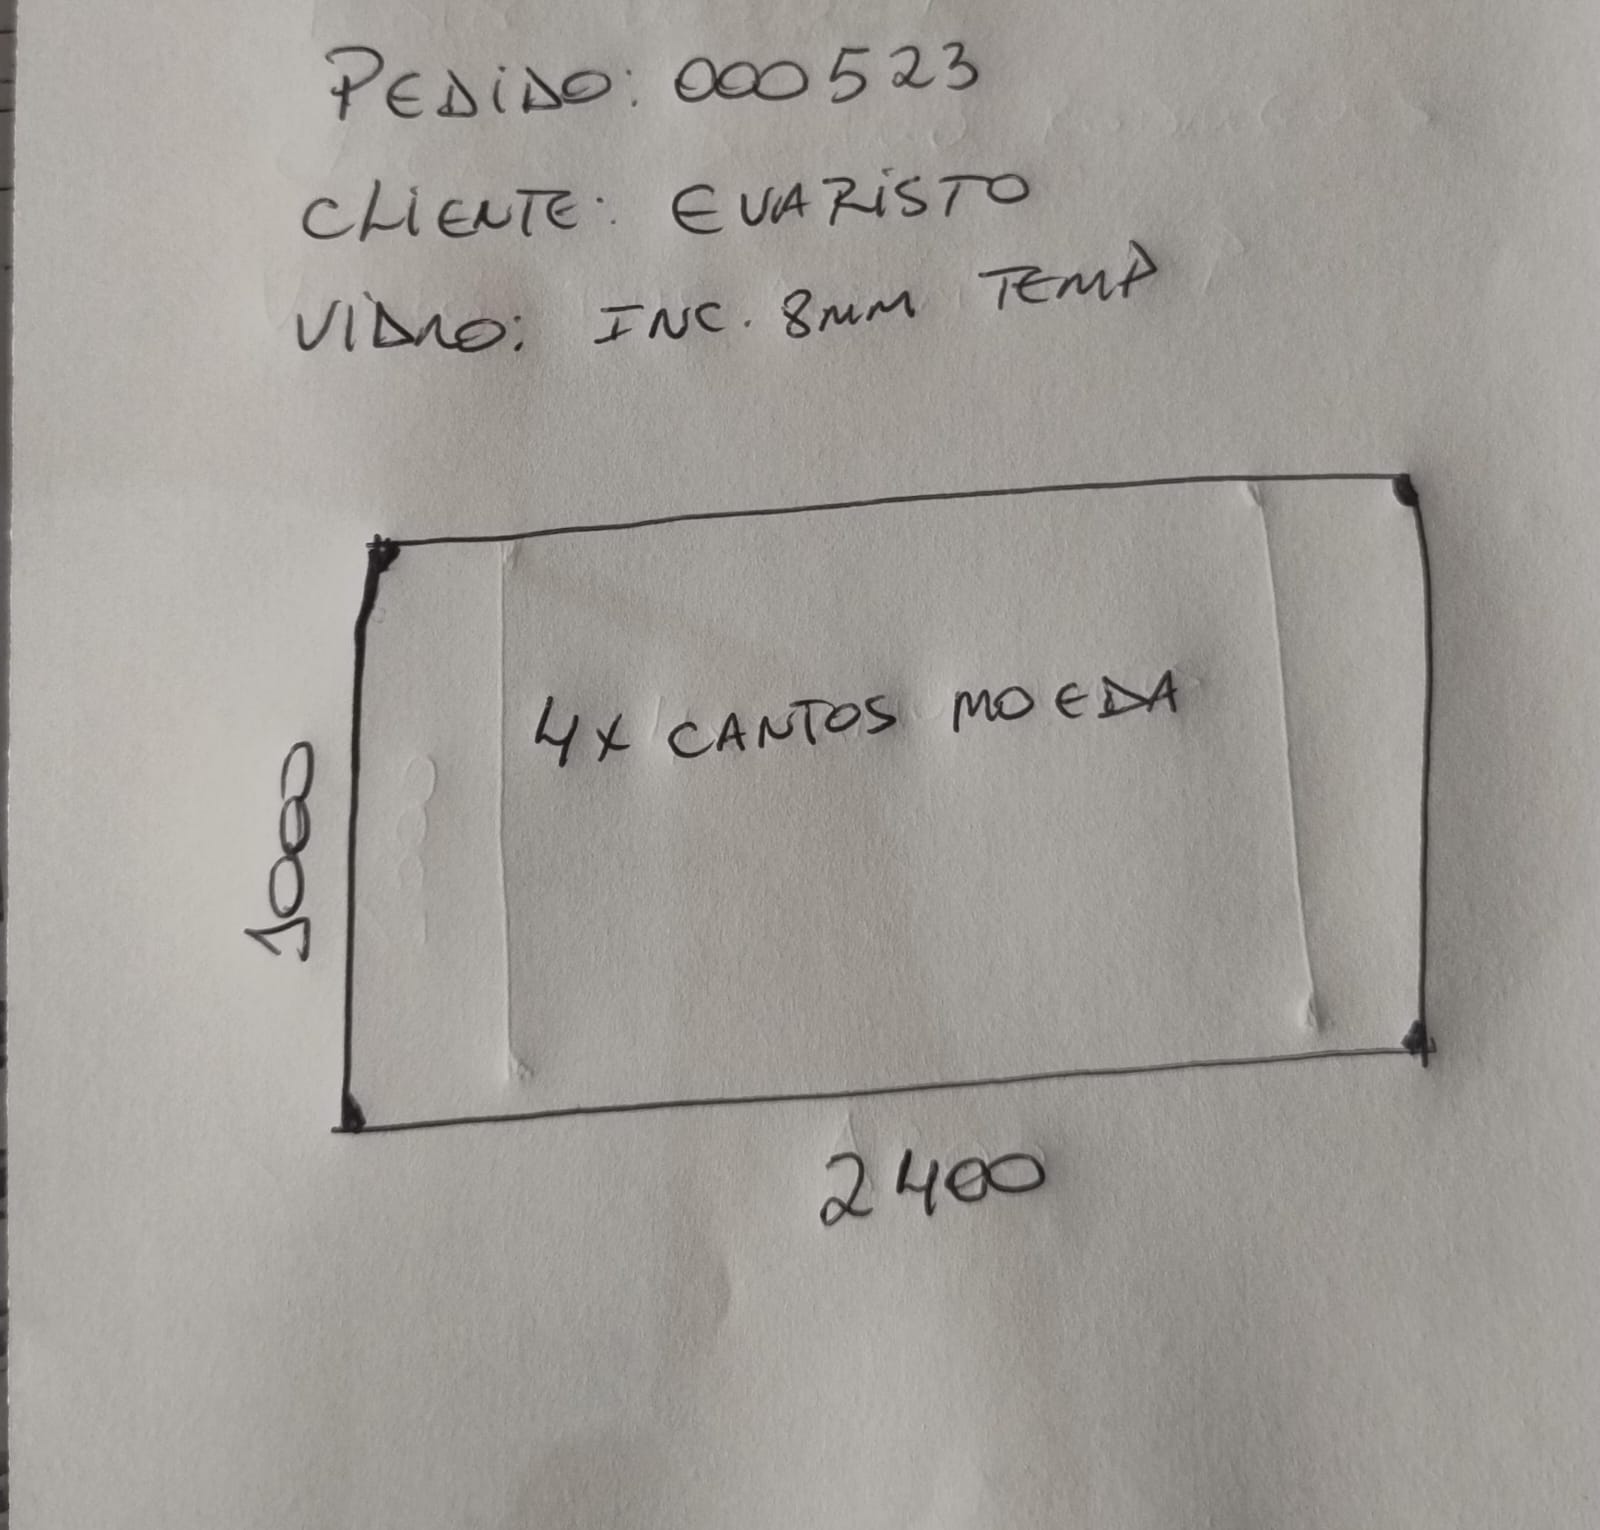 PEDIDO: 000523
CLIENTE: EVARISTO
VIDRO: INC. 8MM TEMP
4X CANTOS MOEDA
1000
2400